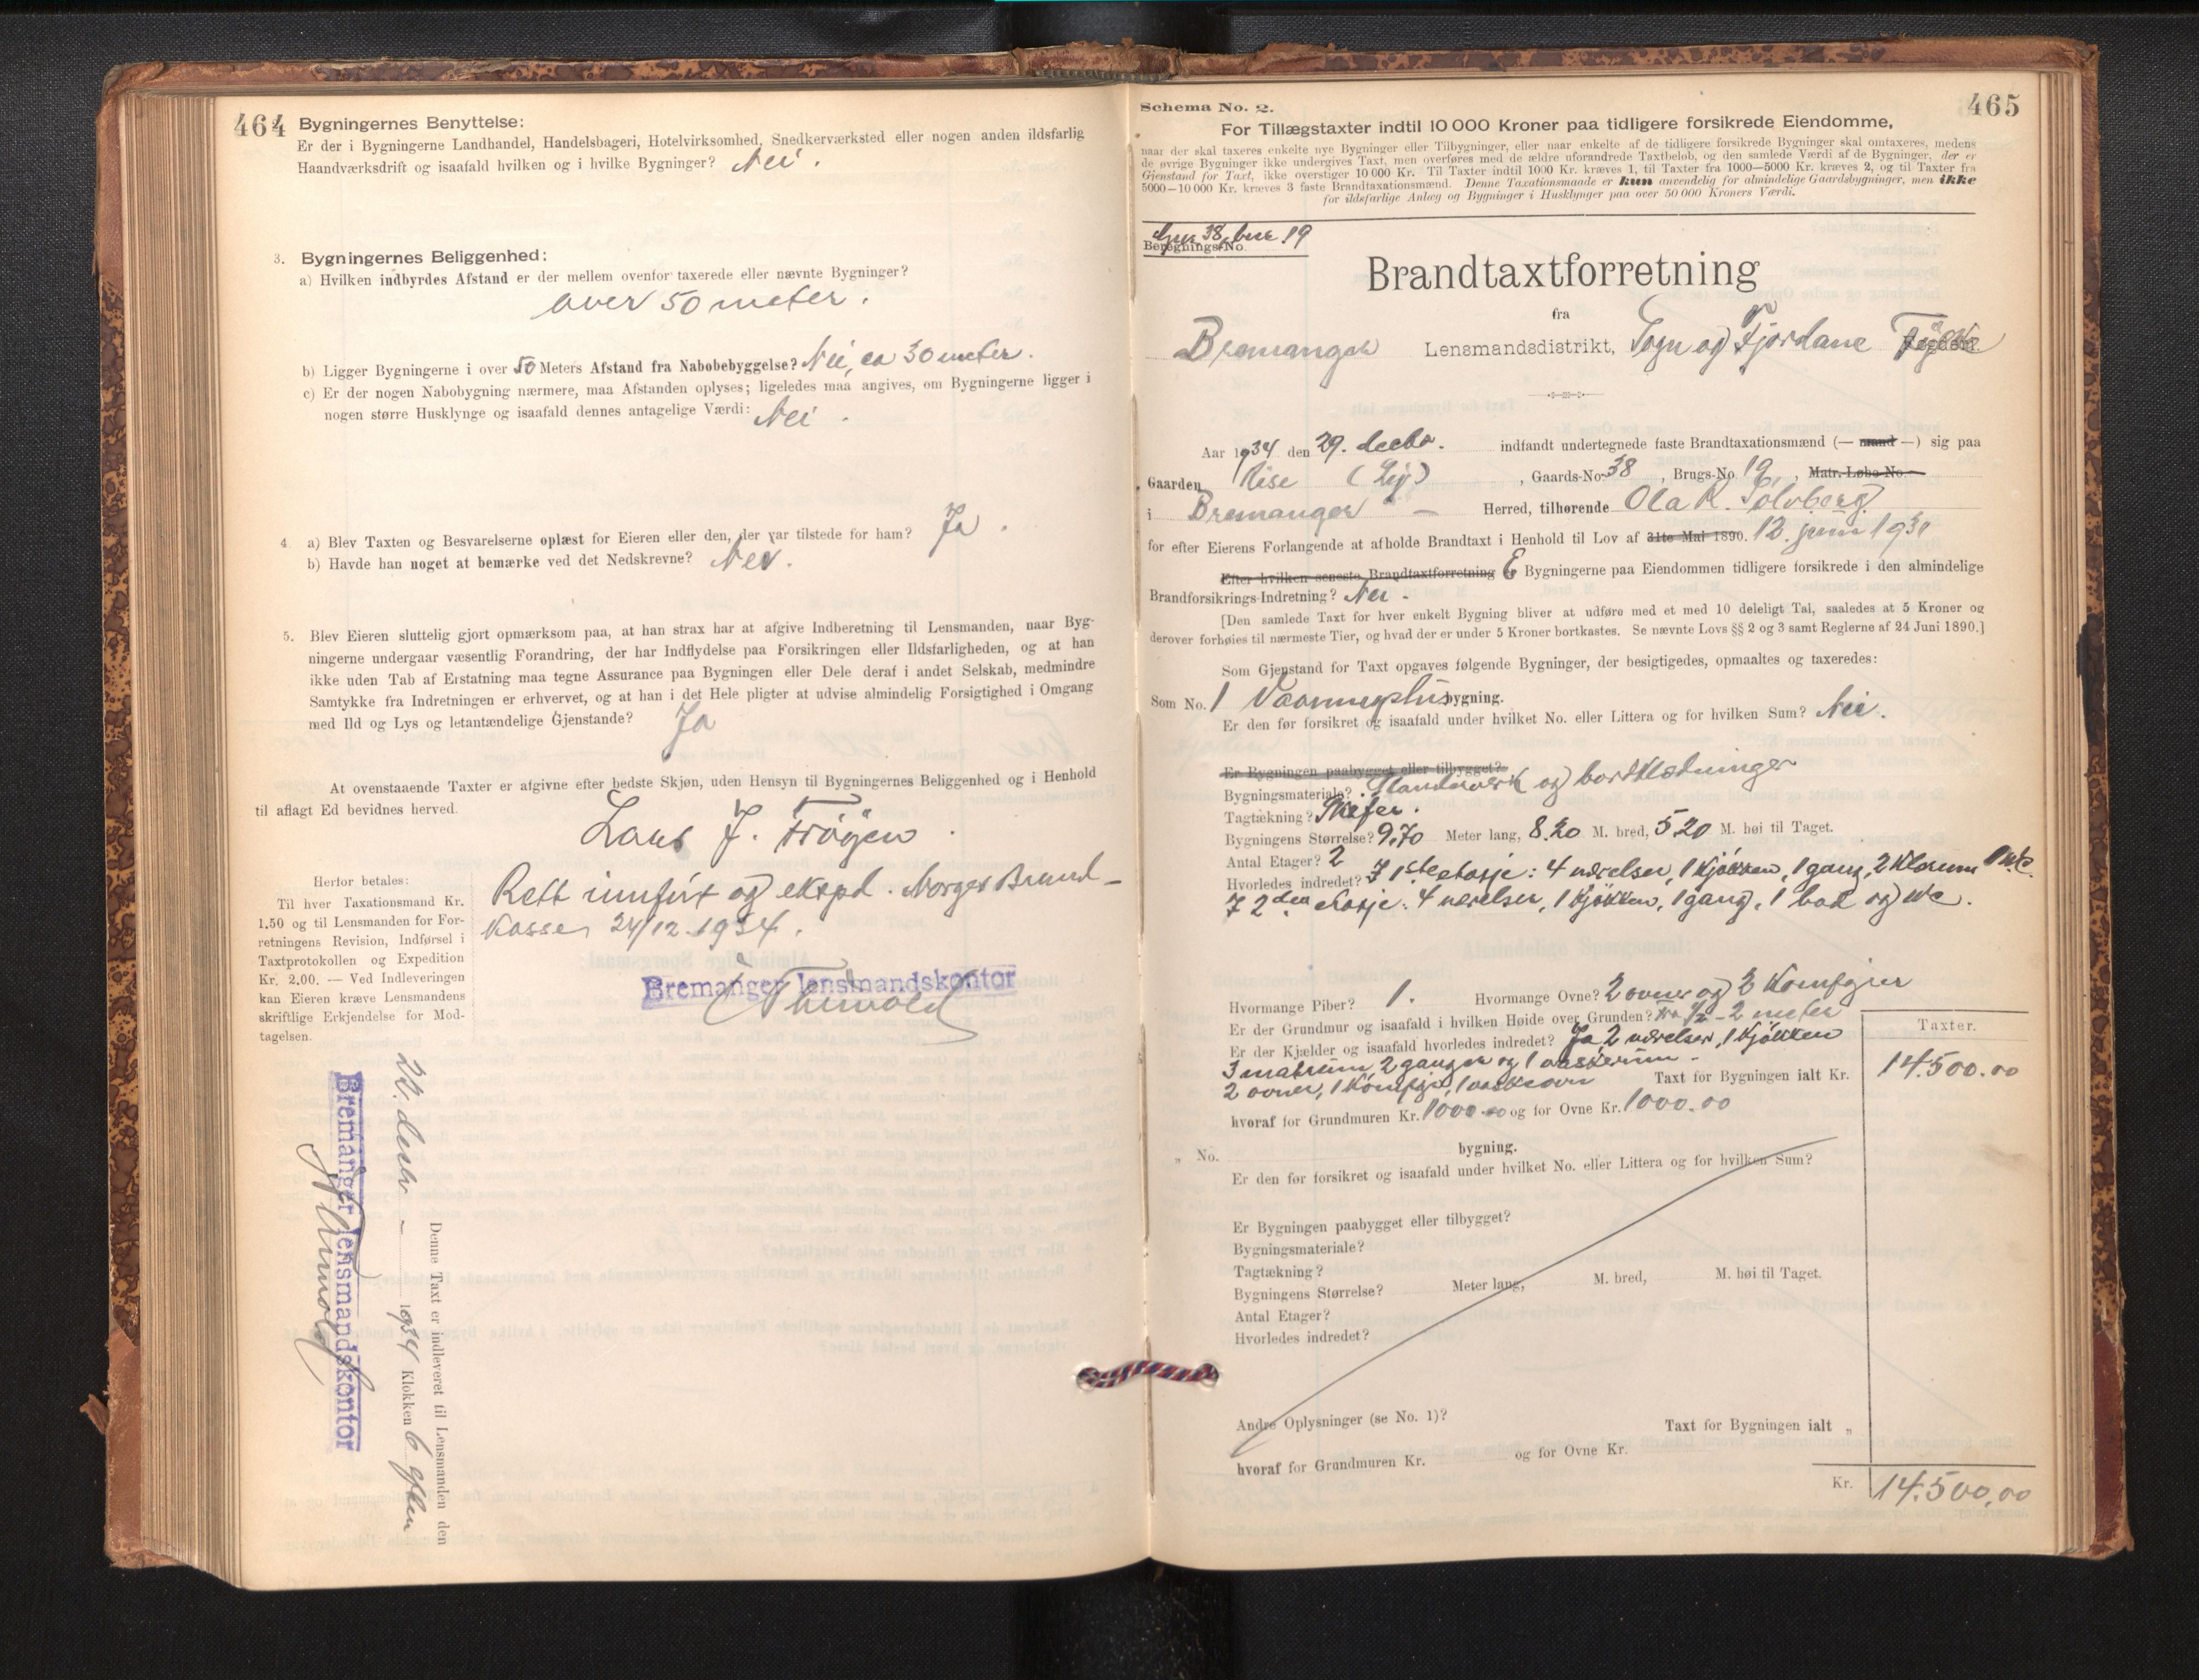 464 Bygningernes Benyttelse:
Er der i Bygningerne Landhandel, Handelsbageri, Hotelvirksomhed, Snedkerværksted eller nogen anden ildsfarlig
Haandværksdrift og isaafald hvilken og i hvilke Bygninger? Nei.
3. Bygningernes Beliggenhed:
a) Hvilken indbyrdes Afstand er der mellem ovenfor taxerede eller nævnte Bygninger?
over 50 meter.
b) Ligger Bygningerne i over 50 Meters Afstand fra Nabobebyggelse? Nei, ca 30 meter.
c) Er der nogen Nabobygning nærmere, maa Afstanden oplyses; ligeledes maa angives, om Bygningerne ligger i
nogen større Husklynge og isaafald dennes antagelige Værdi: Nei.
4. a) Blev Taxten og Besvarelserne oplæst for Eieren eller den, der var tilstede for ham? Ja.
b) Havde han noget at bemærke ved det Nedskrevne? Nei.
5. Blev Eieren sluttelig gjort opmærksom paa, at han strax har at afgive Indberetning til Lensmanden, naar Byg-
ningerne undergaar væsentlig Forandring, der har Indflydelse paa Forsikringen eller Ildsfarligheden, og at han
ikke uden Tab af Erstatning maa tegne Assurance paa Bygningen eller Dele deraf i andet Selskab, medmindre
Samtykke fra Indretningen er erhvervet, og at han i det Hele pligter at udvise almindelig Forsigtighed i Omgang
med Ild og Lys og letantændelige Gjenstande? Ja
At ovenstaaende Taxter er afgivne efter bedste Skjøn, uden Hensyn til Bygningernes Beliggenhed og i Henhold
til aflagt Ed bevidnes herved.
Lars J. Frøyen.
Herfor betales:
Til hver Taxationsmand Kr.
1.50 og til Lensmanden for For-
retningens Revision, Indførsel i
Taxtprotokollen og Expedition
Kr. 2.00. — Ved Indleveringen
kan Eieren kræve Lensmandens
skriftlige Erkjendelse for Mod-
tagelsen.
Rett innført og eksped. Norges Brand-
kasse, 24/12. 1934.
Bremanger lensmandskontor
Denne Taxt er indleveret til Lensmanden den
24. desbr - 1934 Klokken 6 eften
Bremanger lensmandskontor
465
Schema No. 2.
For Tillægstaxter indtil 10 000 Kroner paa tidligere forsikrede Eiendomme,
naar der skal taxeres enkelte nye Bygninger eller Tilbygninger, eller naar enkelte af de tidligere forsikrede Bygninger skal omtaxeres, medens
de øvrige Bygninger ikke undergives Taxt, men overføres med de ældre uforandrede Taxtbeløb, og den samlede Værdi af de Bygninger, der er
Gjenstand for Taxt, ikke overstiger 10 000 Kr. Til Taxter indtil 1000 Kr. kræves 1, til Taxter fra 1000—5000 Kr. kræves 2, og til Taxter fra
5000—10 000 Kr. kræves 3 faste Brandtaxationsmænd. Denne Taxationsmaade er kun anvendelig for almindelige Gaardsbygninger, men ikke
for ildsfarlige Anlæg og Bygninger i Husklynger paa over 50 000 Kroners Værdi.
Gnr 38, bnr 19
Beregnings-No
Brandtaxtforretning
fra
Bremanger Lensmandsdistrikt, Sogn og Fjordane Fylke
Aar 1934 den 29. decbr. indfandt undertegnede faste Brandtaxationsmænd (— mand —) sig paa
Gaarden Rise, Gaards-No 38, Brugs-No 19, Matr. Løbe-No. —
i Bremanger — Herred, tilhørende Ola R. Solvberg
for efter Eierens Forlangende at afholde Brandtaxt i Henhold til Lov af 31te Mai 1890. 12. juni 1931
Efter hvilken seneste Brandtaxtforretning Er Bygningerne paa Eiendommen tidligere forsikrede i den almindelige
Brandforsikrings-Indretning? Nei.
[Den samlede Taxt for hver enkelt Bygning bliver at udføre med et med 10 deleligt Tal, saaledes at 5 Kroner og
derover forhøies til nærmeste Tier, og hvad der er under 5 Kroner bortkastes. Se nævnte Lovs §§ 2 og 3 samt Reglerne af 24 Juni 1890.]
Som Gjenstand for Taxt opgaves følgende Bygninger, der besigtigedes, opmaaltes og taxeredes:
Som No. 1 Vaaningshus bygning.
Er den før forsikret og isaafald under hvilket No. eller Littera og for hvilken Sum? Nei.
Er Bygningen paabygget eller tilbygget?
Bygningsmateriale? Standverk og bordklædninger
Tagtækning? Skifer.
Bygningens Størrelse? 9.70 Meter lang, 8.20 M. bred, 5.20 M. høi til Taget.
Antal Etager? 2
Hvorledes indredet? I 1ste etasje: 4 værelser, 1 kjøkken, 1 gang, 2 klarum 1 wc.
I 2den etasje: 4 værelser, 1 kjøkken, 1 gang, 1 bad og wc.
Hvormange Piber? 1. Hvormange Ovne? 2 ovner og 2 komfyrer
Er der Grundmur og isaafald i hvilken Høide over Grunden? Fra 1/2 - 2 meter
Er der Kjælder og isaafald hvorledes indredet? Ja, 2 værelser, 1 kjøkken
3 matrum, 2 ganger og 1 vaskerum -
2 ovner, 1 komfyr, 1 vaskeovn Taxt for Bygningen ialt Kr.
Taxter.
14.500.00
hvoraf for Grundmuren Kr. 1000.00 og for Ovne Kr. 1000.00
„ No. bygning.
Er den før forsikret og isaafald under hvilket No. eller Littera og for hvilken Sum?
Er Bygningen paabygget eller tilbygget?
Bygningsmateriale?
Tagtækning?
Bygningens Størrelse? Meter lang, M. bred, M. høi til Taget.
Antal Etager?
Hvorledes indredet?
Andre Oplysninger (se No. 1)? Taxt for Bygningen ialt „
hvoraf for Grundmuren Kr. og for Ovne Kr.
Kr. 14.500,00